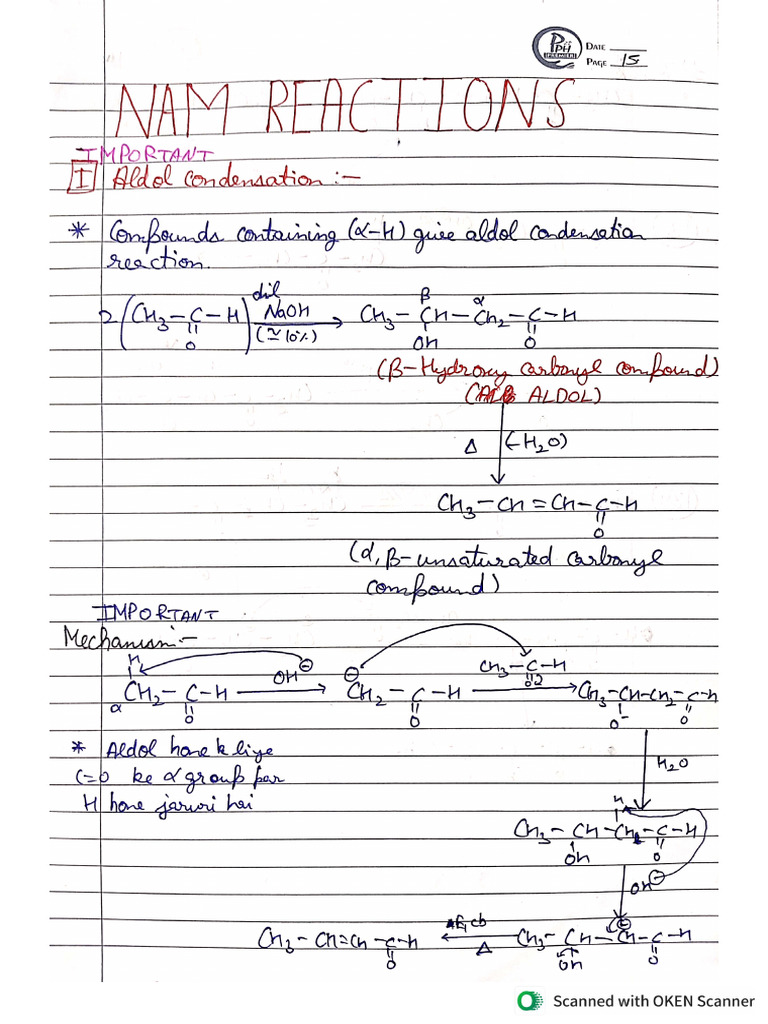 PPH
PREMIER
DATE
PAGE 15
NAM REACTIONS
IMPORTANT
I Aldol condensation :-
* Compounds containing (α-H) give aldol condensation
reaction.
2 (CH3-C-H) dil NaOH (≃10%) → CH3-CH-CH2-C-H
O β OH α O
(β-Hydroxy carbonyl compound)
ALDOL)
Δ (-H2O)
CH3-CH=CH-C-H
O
(α,β-unsaturated carbonyl
compound)
IMPORTANT
Mechanism:-
H OH⊖ ⊖ CH3-C-H
CH2-C-H → CH2-C-H → CH3-CH-CH2-C-H
α O O O- O
* Aldol hone k liye
C=O ke α group par
H hone jaruri hai
H2O
H
CH3-CH-CH-C-H
OH O
OH⊖
CH3-CH=CH-C-H ← E1cb Δ CH3-CH-CH-C-H
O OH ⊖ O
Scanned with OKEN Scanner